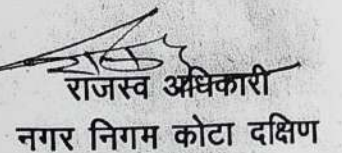 राजस्व अधिकारी
नगर निगम कोटा दक्षिण